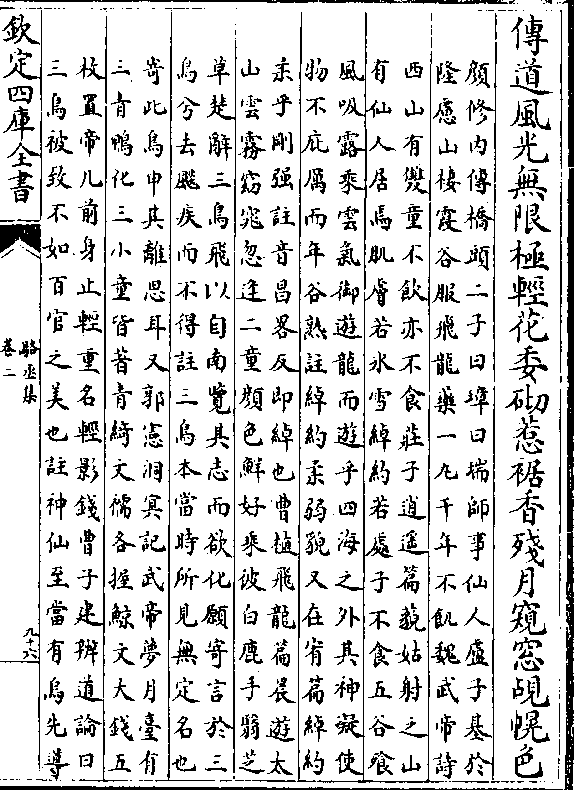 傳道風光無限極輕花委砌惹裾香殘月窺窓覘幌色
顏修內傳橋順二子曰璋曰瑞師事仙人盧子基於
隆慮山棲霞谷服飛龍藥一丸千年不飢魏武帝詩
西山有雙童不飲亦不食莊子逍遥篇藐姑射之山
有仙人居焉肌膚若氷雪綽約若處子不食五谷飡
風吸露乘雲氣御遊龍而遊乎四海之外其神凝使
物不疵厲而年谷熟註綽約柔弱貌又在宥篇綽約
柔乎剛强註音昌畧反即綽也曹植飛龍篇晨遊太
山雲霧窈窕忽逢二童顏色鮮好乘彼白鹿手翳芝
草楚辭三鳥飛以自南覽其志而欲化願寄言於三
鳥兮去飈疾而不得註三鳥本當時所見無定名也
嵜此鳥申其離思耳又郭憲洞冥記武帝夢月臺有
三青鴨化三小童皆著青綺文襦各握鯨文大錢五
枚置帝几前身止輕重名輕影錢曹子建辨道論曰
三鳥被致不如百官之美也註神仙至當有鳥先導
欽定四庫全書
駱丞集
卷二
九十六